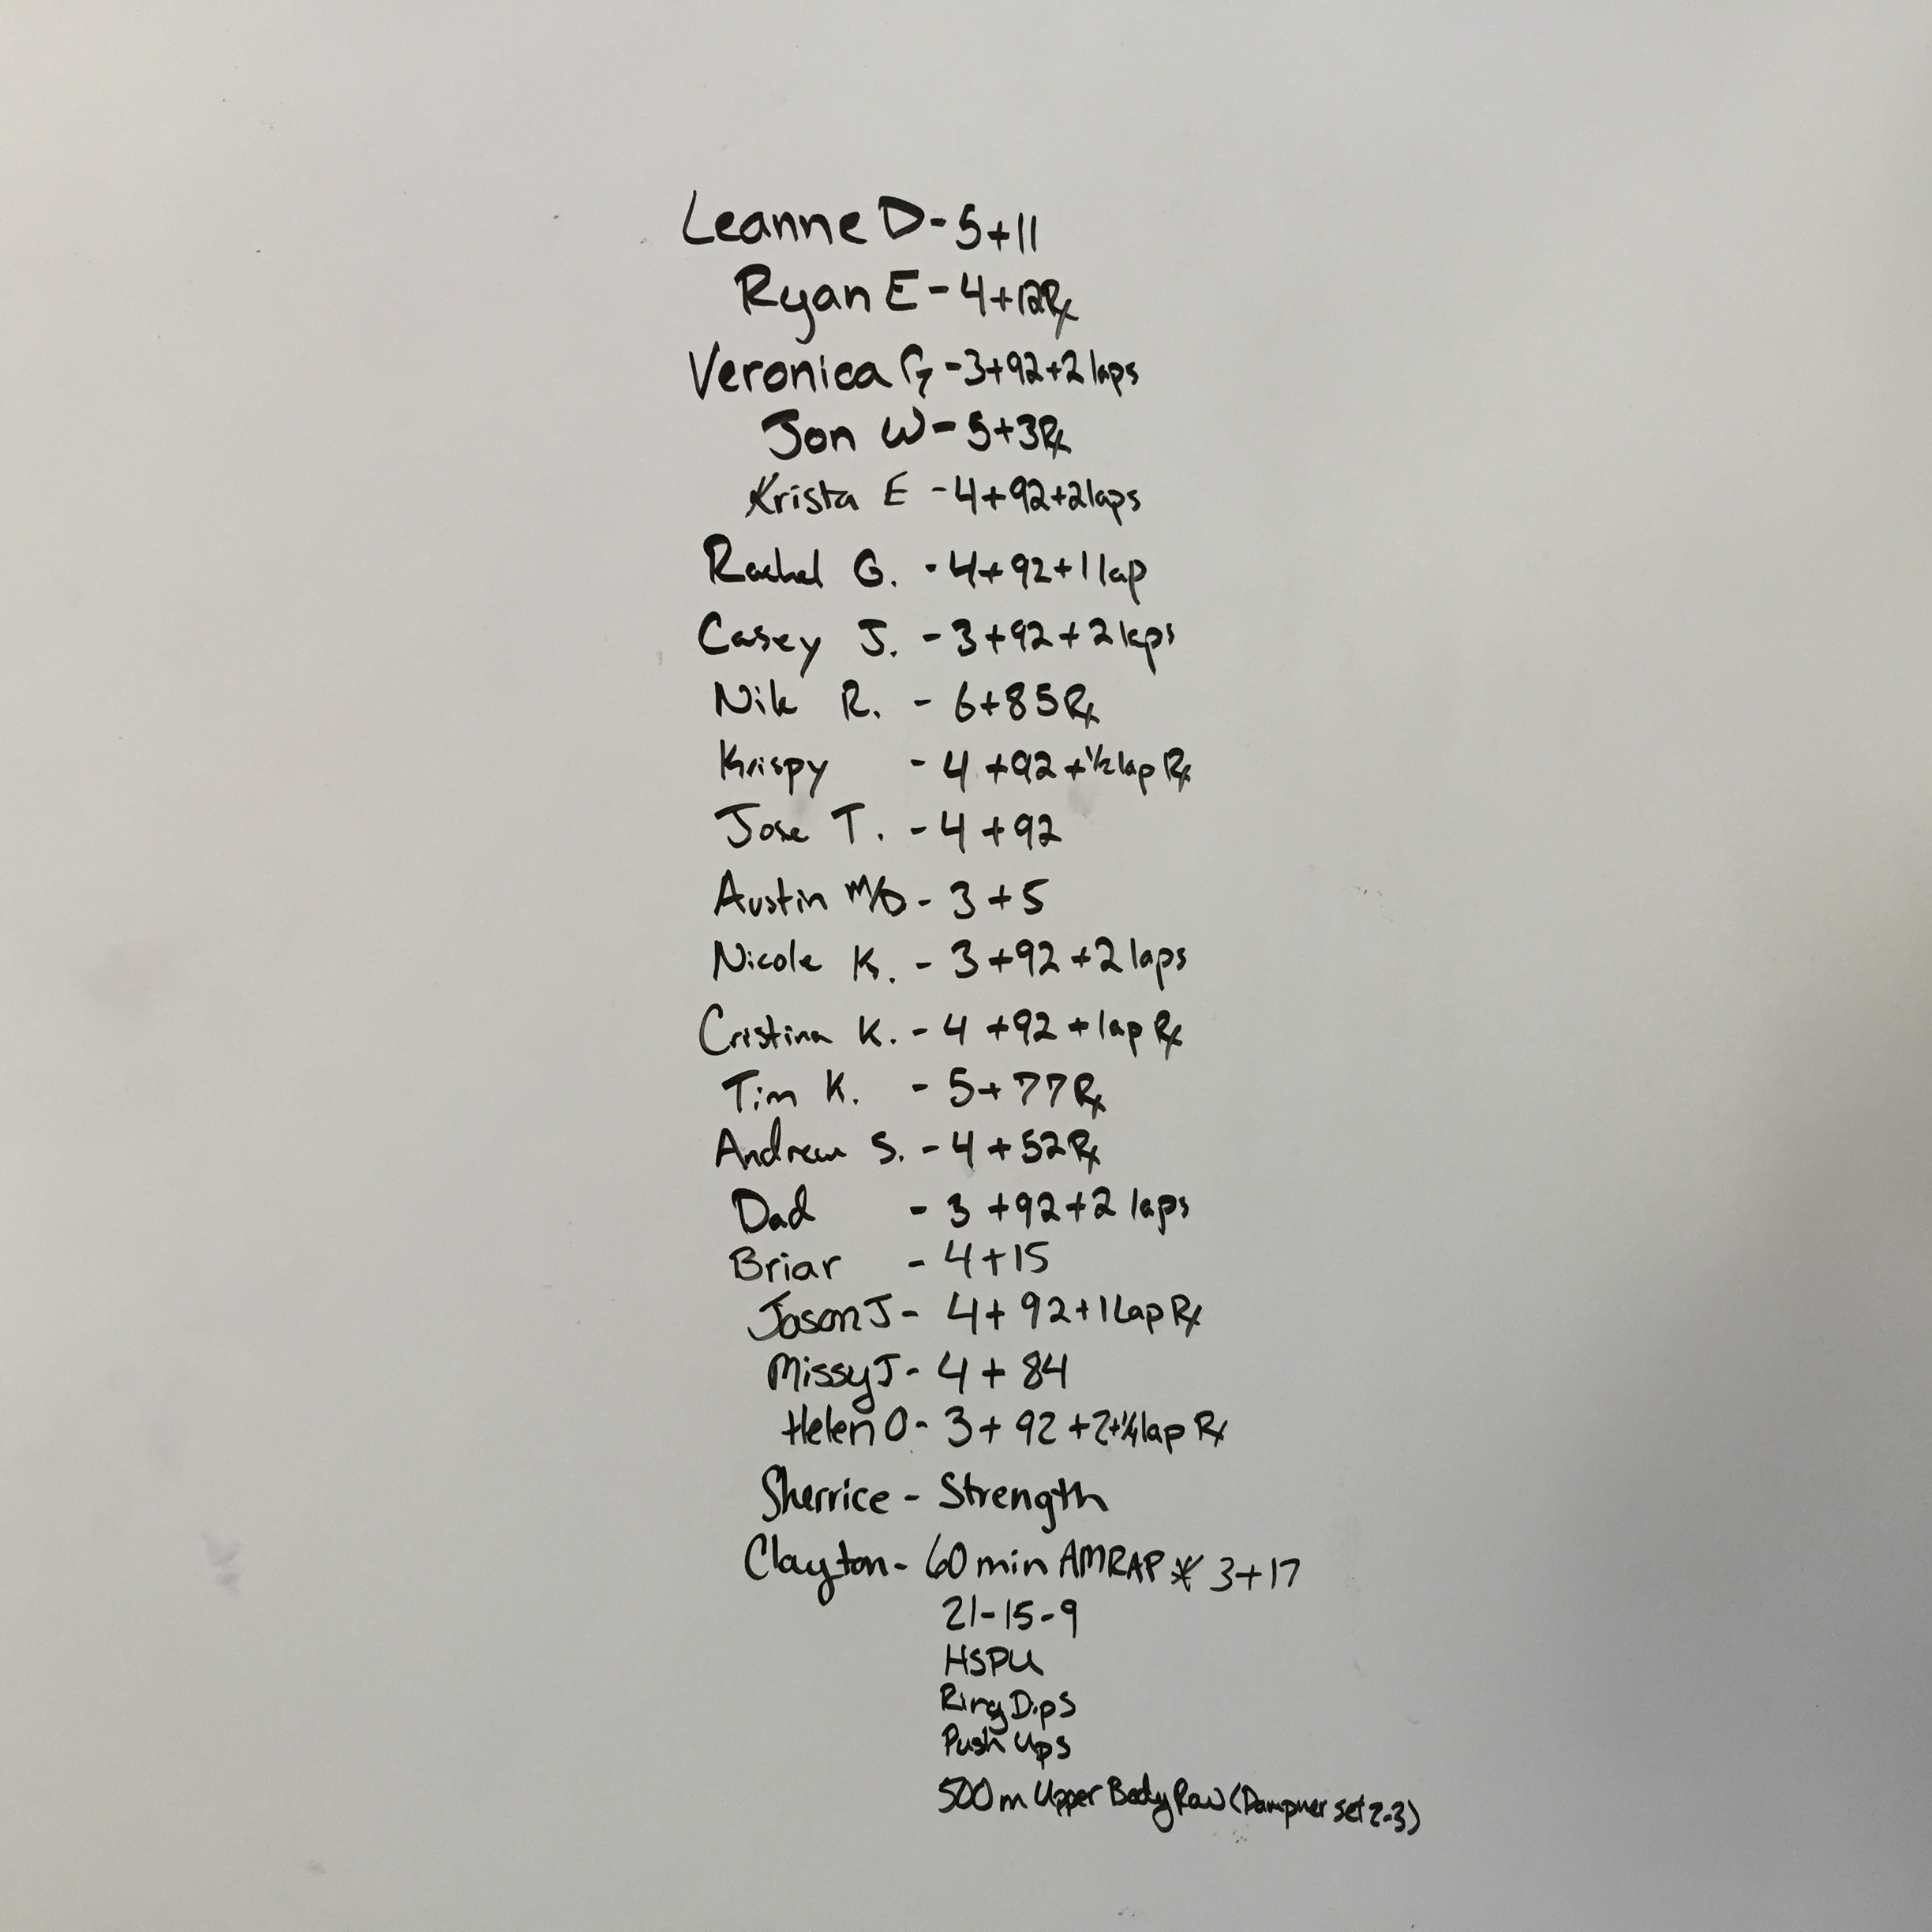 Leanne D - 5+11
Ryan E - 4+12Rx
Veronica G - 3+92+2 laps
Jon W - 5+3Rx
Krista E - 4+92+2laps
Rachel G. - 4+92+1 lap
Casey J. - 3+92+2 laps
Nik R. - 6+85Rx
Krispy - 4+92+1/2 lap Rx
Jose T. - 4+92
Austin - 3+5
Nicole K. - 3+92+2 laps
Cristina K. - 4+92+lap Rx
Tim K. - 5+77Rx
Andrew S. - 4+52Rx
Dad - 3+92+2 laps
Briar - 4+15
Jason J - 4+92+1 Lap Rx
Missy J - 4+84
Helen O - 3+92+2+1/4 lap Rx
Sherrice - Strength
Clayton - 60 min AMRAP * 3+17
21-15-9
HSPU
Ring Dips
Push Ups
500m Upper Body Row (Dampner set 2-3)